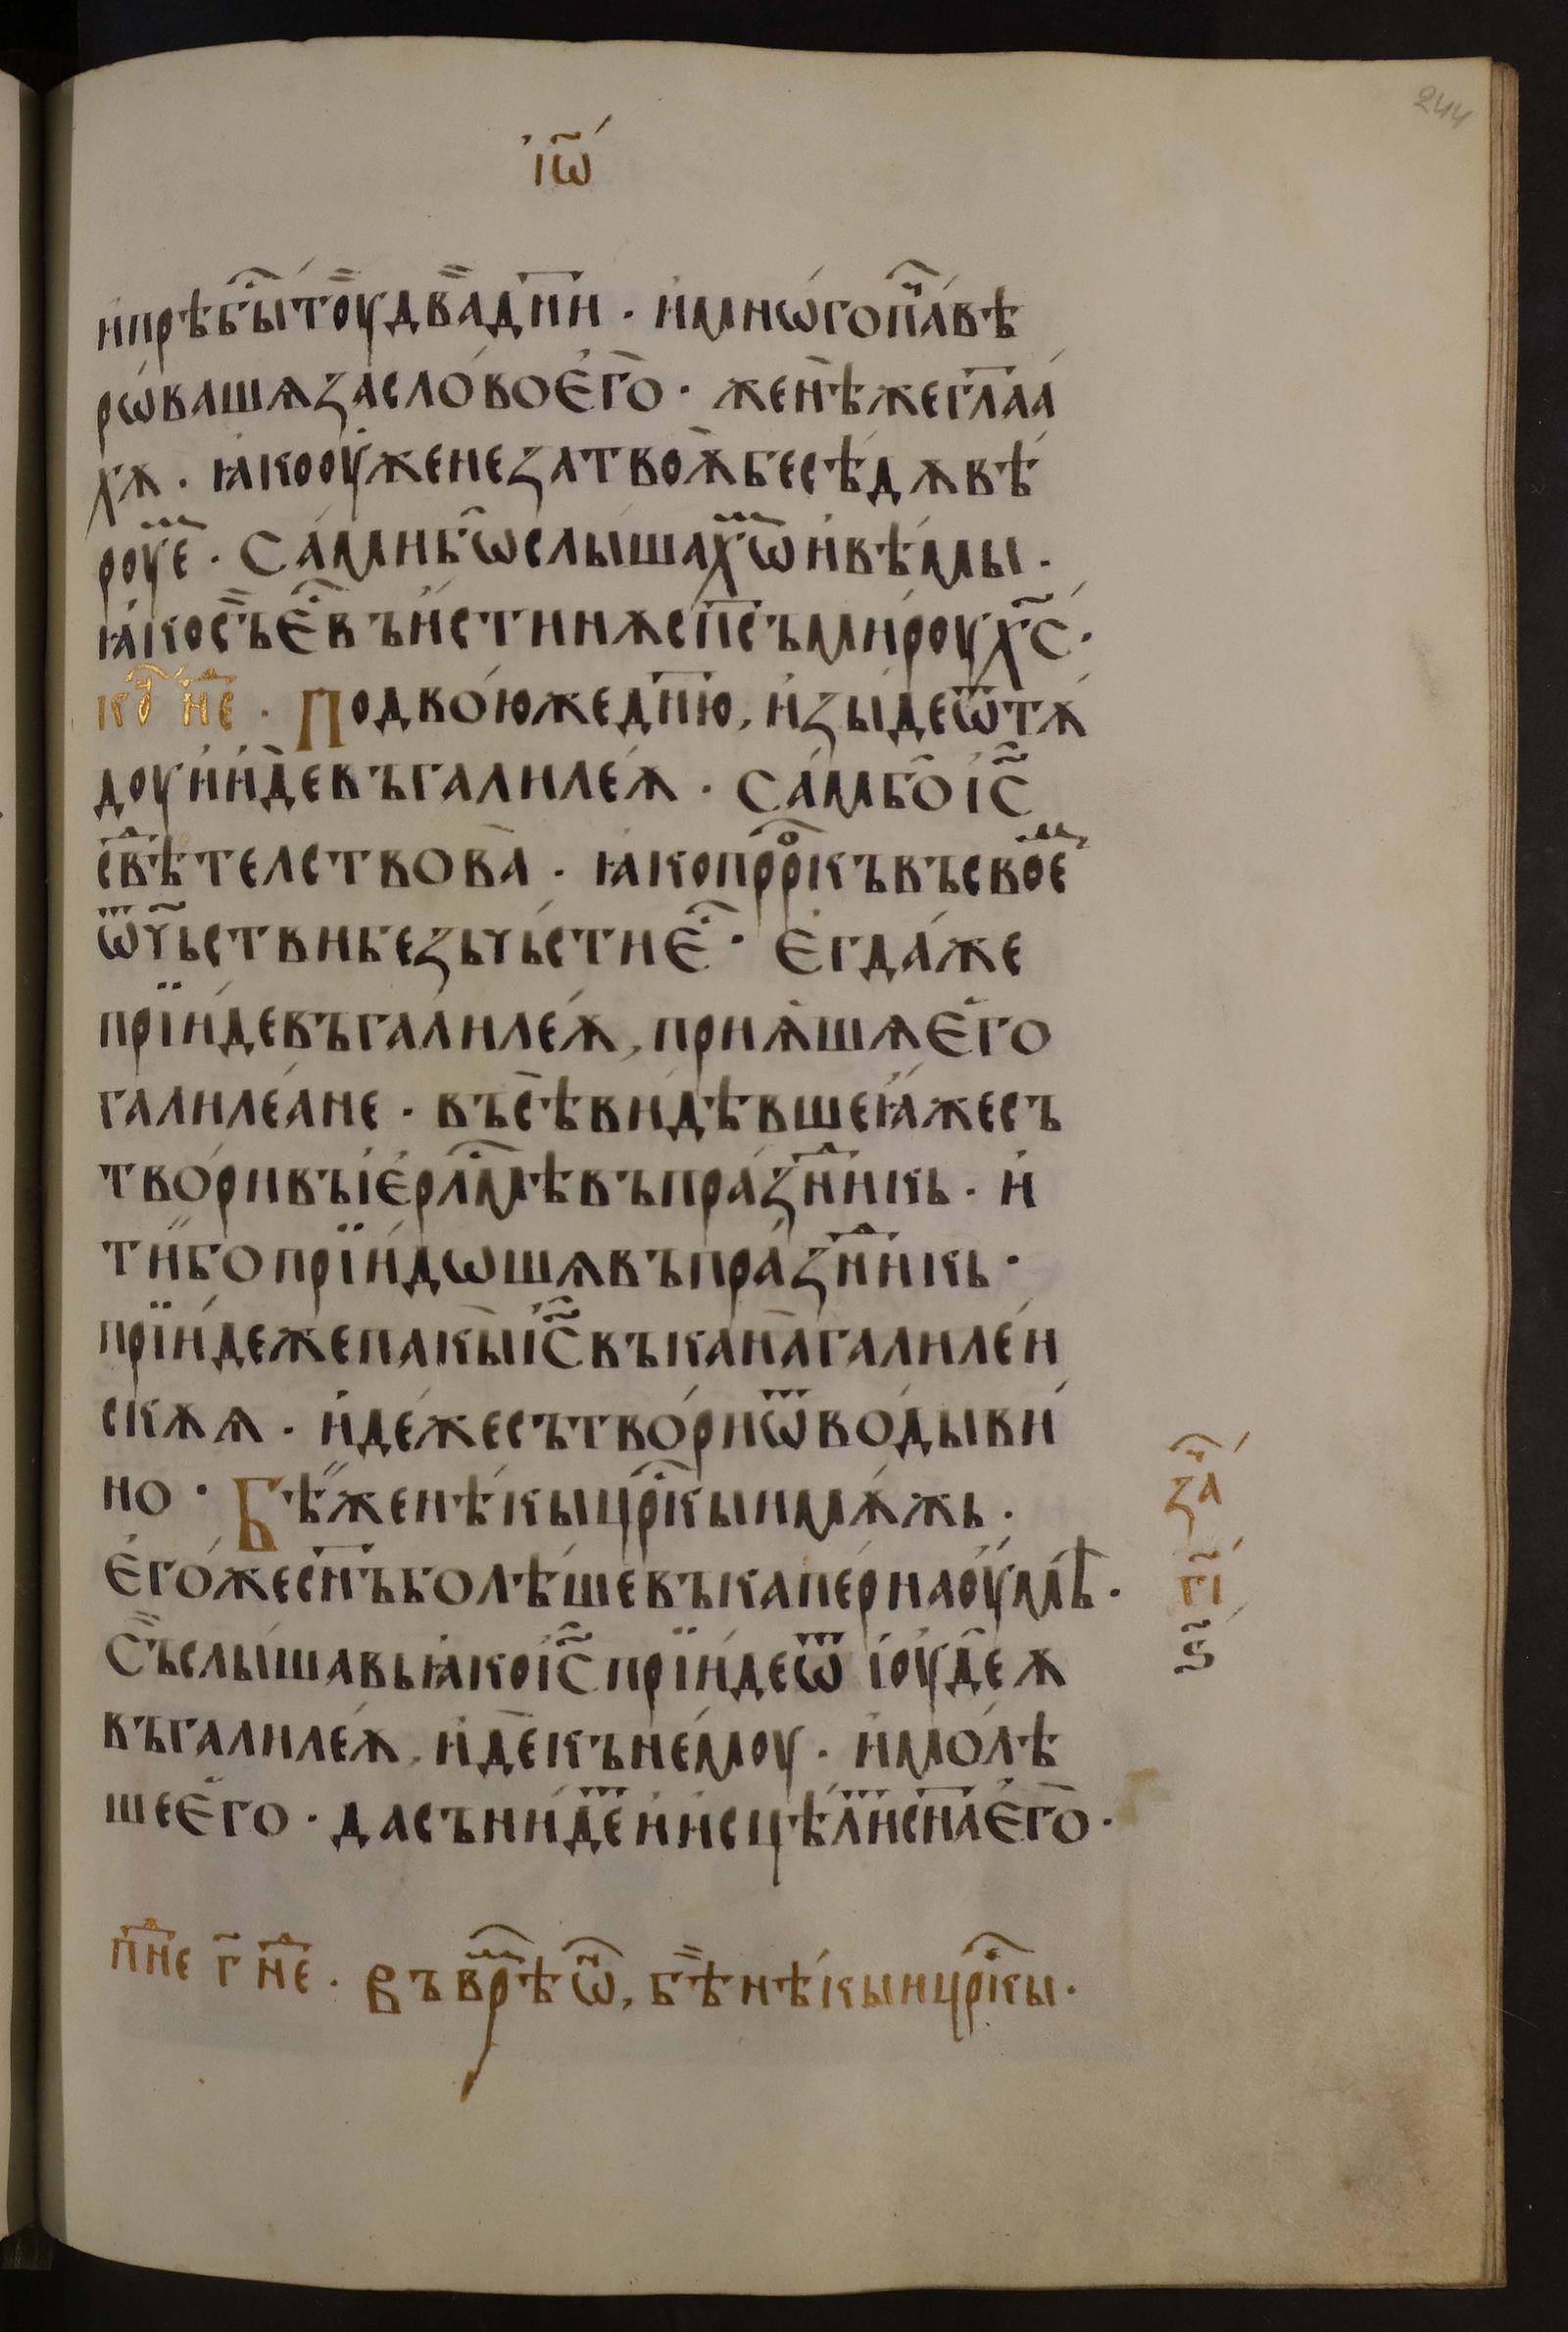 244
і҆ѡ҃
и҆прѣбы̑тоу̀два̀дн҃и · и҆мнѡ́гопа́чевѣ
рѡ́вашѧзасло́воє҆го̀ · женѣ̀жегл҃аа́
хѫ · ꙗ҆коѹ҆женезатвоѫ̀бесѣ́дѫвѣ́
роуеⷨ · Са́мибѡслы́шахѡⷨи҆вѣ́мы ·
ꙗ҆́косъ̀є҆ⷭ҇въи҆́стинѫсп҃съми́роухс҃ ·
коⷰ҇ неⷣ · Подвою́жедн҃ію, и҆зы́деѿтѫ́
доуи҆и҆́девъгалиле́ѫ · Са́мбоіс҃
свⷣѣ́телствова̀ · ꙗ҆копрⷪ҇ркъвъсвое́ⷨ
ѿч҃ьствибезьчь́стиє҆ⷭ҇ · Є҆гда́же
прїи́девъгалиле́ѫ, прїѫ́шѫє҆го̀
галиле́ане · въсѣ̀ви́дѣвшеꙗ҆́жесъ
тво́ривъіє҆рⷭ҇лмѣвъпра́зⷣникь · и҆
ти́бопрїи́дѡшѧвъпра́зⷣникь ·
прїи́дежепакы̀іс҃въкана̀галиле́и
скѫѧ · и҆де́жесътво́риѿво́дыви́
но · Бѣ̀женѣ́кыцр҃ⷭкыимѫ́жь ·
Є҆го́жесн҃ъболѣ́шевъкапе́рнаѹ́мѣ ·
Съ̀слы́шавьꙗ҆коіс҃прїи́деѿ і҆ѹде́ѫ
въгалиле́ѫ, и҆́декънемоу̀ · и҆мо́лѣ
шеє҆го̀ · дасъни́деⷮи҆и҆сцѣ́лиⷮсн҃ає҆го̀ ·
заⷱ
г҃і
ѕ҃
пнⷣе г҃ нⷣе · Въврⷨѣѡⷩ, бѣ̀нѣ́кыицр҃ⷭкы ·